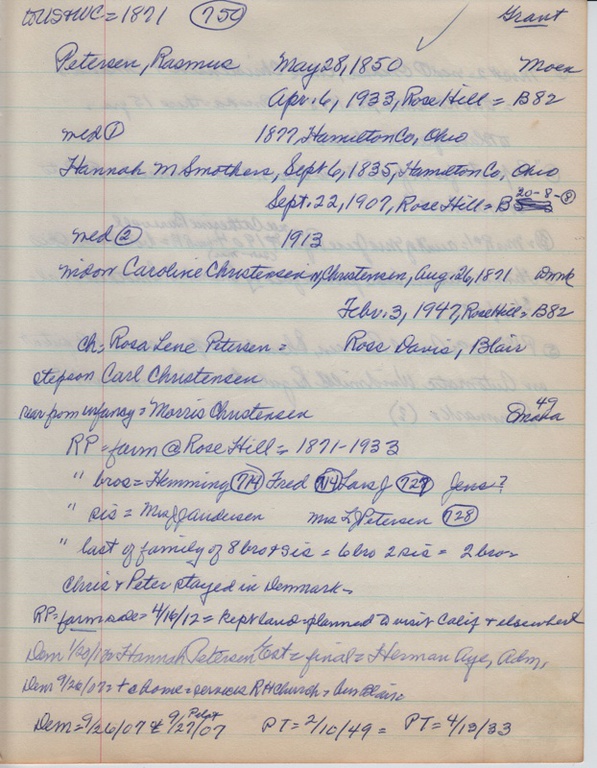 to US & WC = 1871 (750) Grant
Petersen, Rasmus May 28, 1850 Moen
Apr. 6, 1933, Rose Hill = B82
med ① 1877, Hamilton Co, Ohio
Hannah M Smothers, Sept 6, 1835, Hamilton Co, Ohio
Sept. 22, 1907, Rose Hill = B 20-8-⑧
med ② 1913
widow Caroline Christensen n, Christensen, Aug. 26, 1871 Dnmk
Febr. 3, 1947, Rose Hill = B82
ch = Rosa Lene Petersen = Rose Davis, Blair
stepson Carl Christensen
rear from infancy = Morris Christensen 49 Omaha
RP = farm @ Rose Hill = 1871-1933
" bros = Hemming (774) Fred Lars J (727) Jens?
" sis = Mrs J Jandersen Mrs L Petersen (728)
" last of family of 8 bro & sis = 6 bro 2 sis = 2 bro =
Chris & Peter stayed in Denmark =
RP = farm sale = 4/16/12 = kept land = planned to visit Calif & elsewhere
Dem = Hannah Petersen Est = final = Herman Aye, Adm,
Dem 9/26/07 = + @ home = services RH Church =
Dem = 9/26/07 & 9/27/07 PT = 2/10/49 = PT = 4/13/33